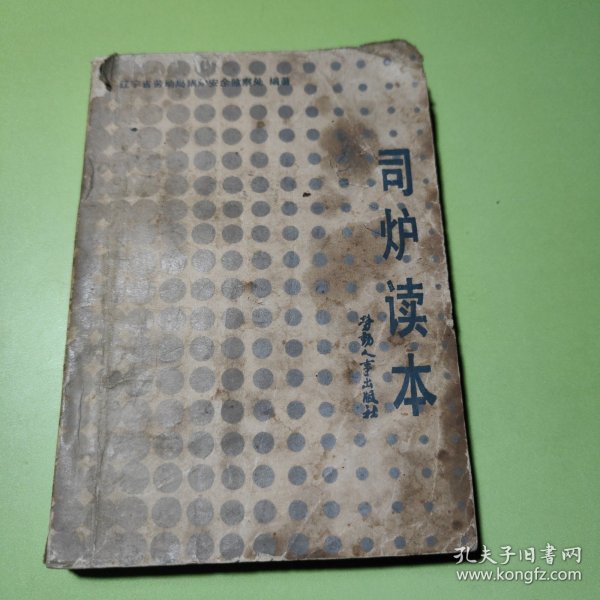 辽宁省劳动局锅炉安全监察处 编著
司炉读本
劳动人事出版社
孔夫子旧书网
www.kongfz.com